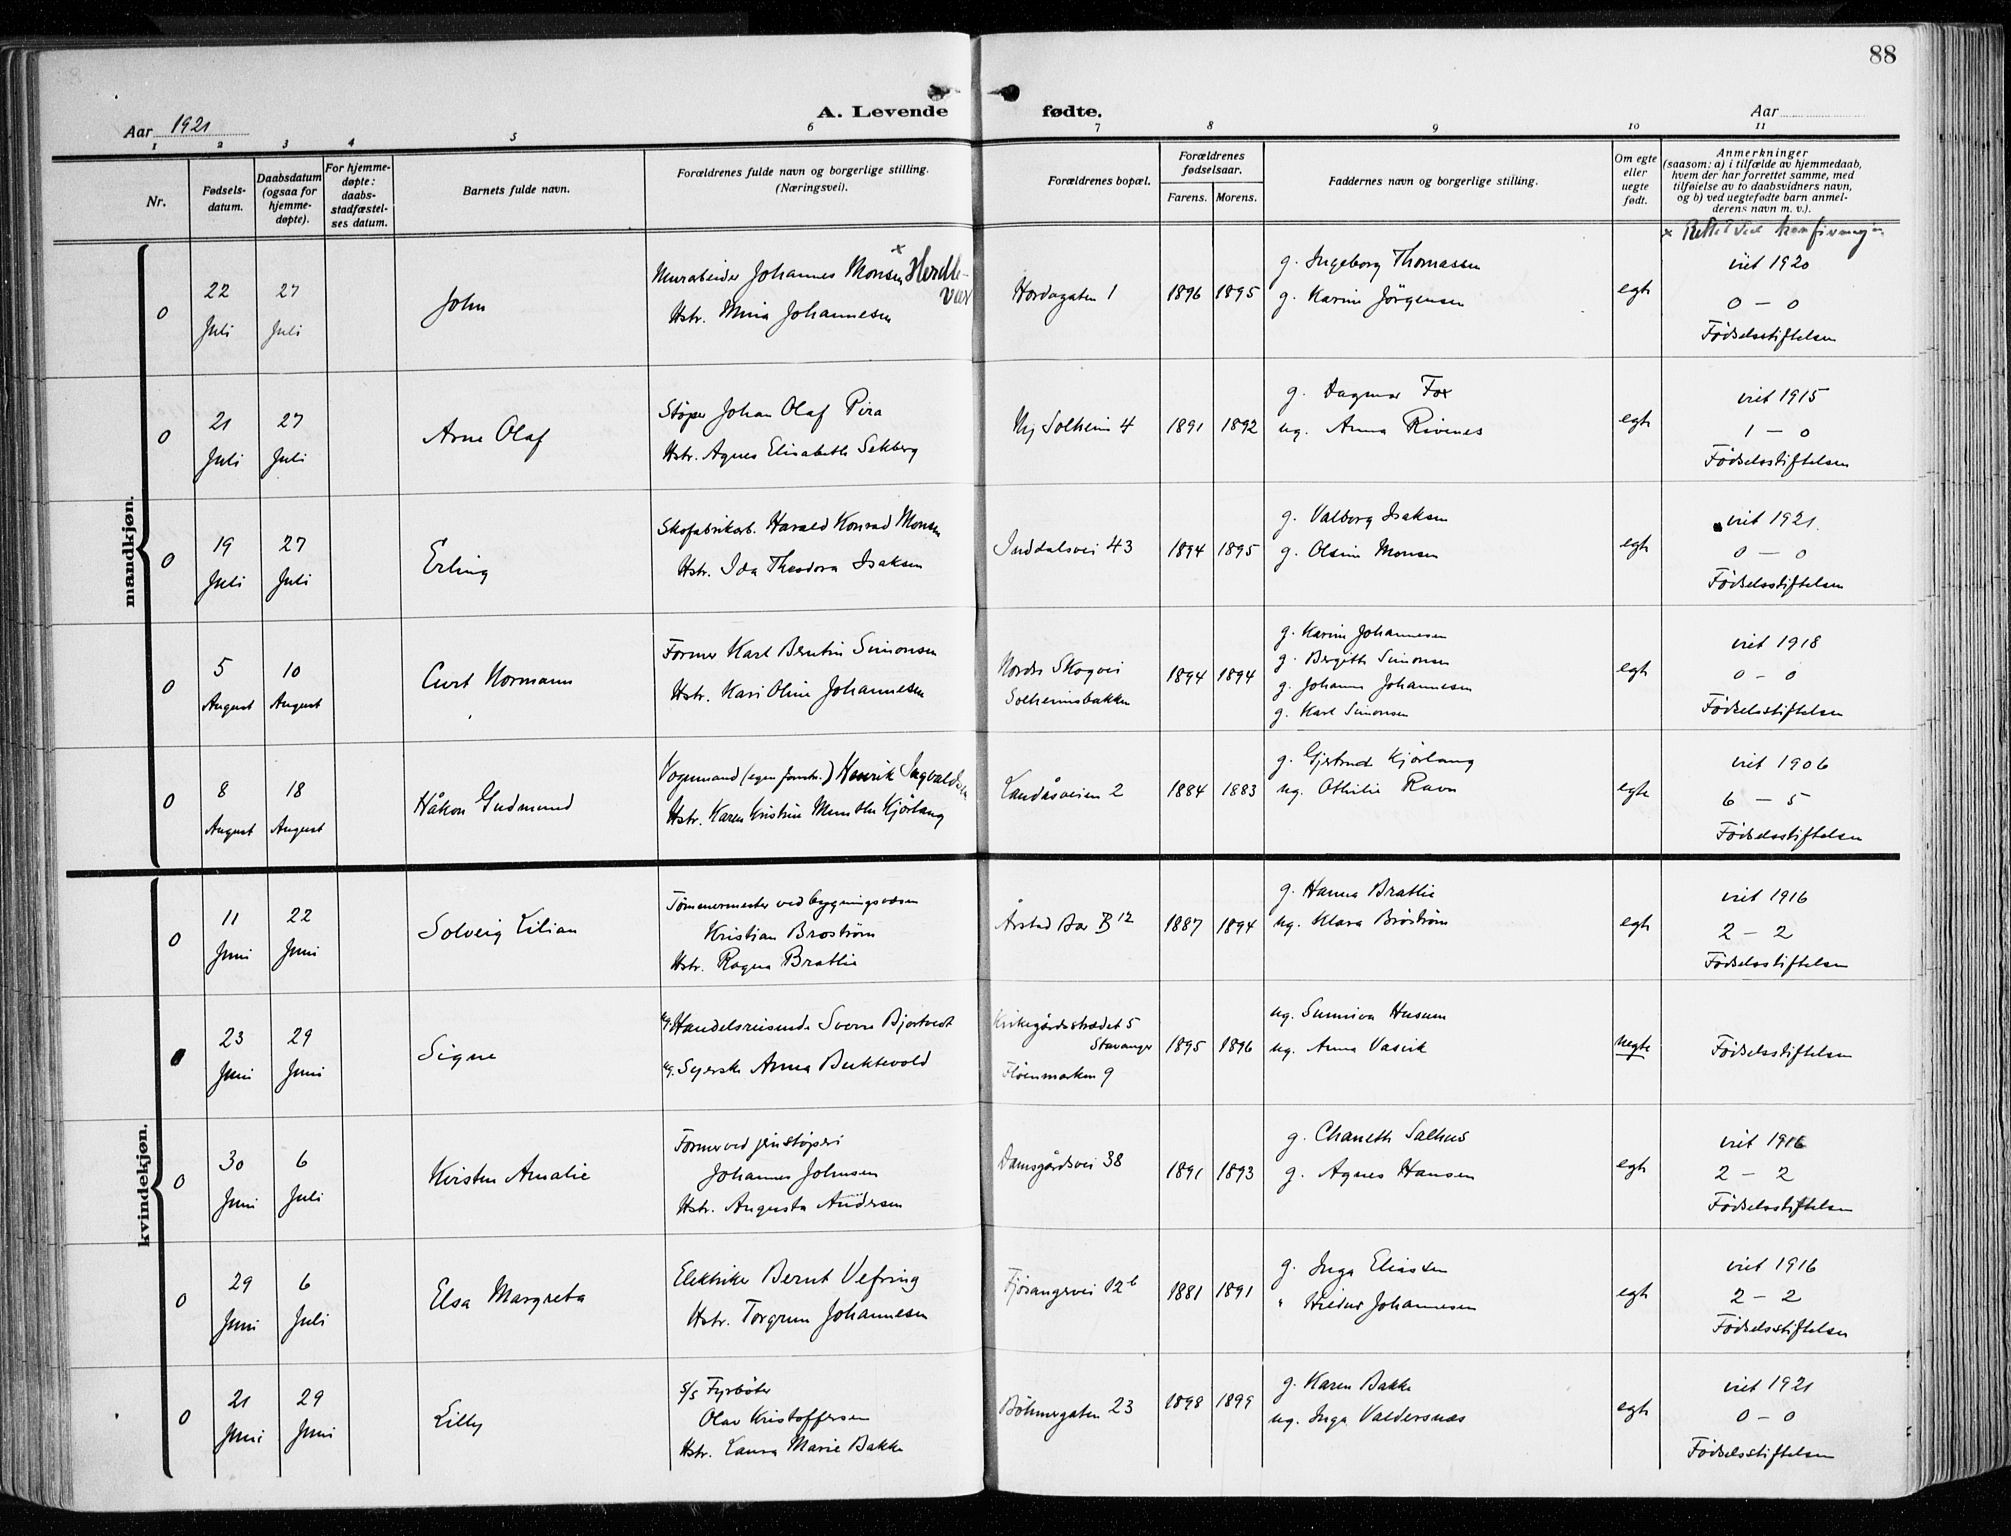 88
A. Levende fødte.
Aar 1921
Aar
1 2 3 4 5 6 7 8 9 10 11
Nr.
Fødsels-
datum.
Daabsdatum
(ogsaa for
hjemme-
døpte).
For hjemme-
døpte:
daabs-
stadfæstel-
ses datum.
Barnets fulde navn.
Forældrenes fulde navn og borgerlige stilling.
(Næringsvei).
Forældrenes bopæl.
Forældrenes
fødselsaar.
Farens. Morens.
Faddernes navn og borgerlige stilling.
Om egte
eller
uegte
født.
Anmerkninger
(saasom: a) i tilfælde av hjemmedaab,
hvem der har forrettet samme, med
tilføielse av to daabsvidners navn,
og b) ved uegtefødte barn anmel-
derens navn m. v.).
mandkjøn.
x Rettet ved
0
22
Juli
27
Juli
John
Murarbeider Johannes Monsen x Herdle-
vær
Hstr. Mina Johannesen
Hordagaten 1
1896 1895
g. Ingeborg Thomassen
g. Karine Jørgensen
egte
viet 1920
0 - 0
Fødselsstiftelsen
0
21
Juli
27
Juli
Arne Olaf
Støper Johan Olaf Pira
Hstr. Agnes Elisabeth Sekberg
Ny Solheim 4
1891 1892
g. Dagmar Fox
ug. Anna Rivenes
egte
viet 1915
1 - 0
Fødselsstiftelsen
0
19
Juli
27
Juli
Erling
Skofabrikarb. Harald Konrad Monsen
Hstr. Ida Theodora Isaksen
Inddalsvei 43
1894 1895
g. Valborg Isaksen
g. Olsine Monsen
egte
viet 1921
0 - 0
Fødselsstiftelsen
0
5
August
10
August
Curt Normann
Former Karl Bentin Simonsen
Hstr. Kari Oline Johannesen
Nordre Skogvei
Solheimsbakken
1894 1894
g. Karine Johannesen
g. Bergith Simonsen
g. Johanne Johannesen
g. Karl Simonsen
egte
viet 1918
0 - 0
Fødselsstiftelsen
0
8
August
18
August
Håkon Gudmund
Vognmand (egen forretn.) Henrik Ingvaldsen
Hstr. Karen Kristine Munthe Kjørlaug
Landåsveien 2
1884 1883
g. Gjertrud Kjørlaug
ug. Othilie Ravn
egte
viet 1906
6 - 5
Fødselsstiftelsen
kvindekjøn.
0
11
Juni
22
Juni
Solveig Lilian
Tømmermester ved bygningsvæsen
Kristian Broström
Hstr. Ragna Bratlie
Årstad Bar B 12
1887 1894
g. Hanna Bratlie
ug. Klara Broström
egte
viet 1916
2 - 2
Fødselsstiftelsen
0
23
Juni
29
Juni
Signe
ug. Handelsreisende Sverre Bjortvedt
ug. Syerske Anna Buktevold
Kirkegårdsstrædet 5
Stavanger
Fløenmarken 9
1895 1896
ug. Sunniva Husum
ug. Anna Vasvik
uegte
Fødselsstiftelsen
0
30
Juni
6
Juli
Kirsten Amalie
Former ved jernstøperi
Johannes Johnsen
Hstr. Augusta Andersen
Damsgårdsvei 38
1891 1893
g. Chaneth Salhus
g. Agnes Hansen
egte
viet 1916
2 - 2
Fødselsstiftelsen
0
29
Juni
6
Juli
Elsa Margreta
Elektriker Bernt Vefring
Hstr. Torgrun Johannesen
Fjøsangervei 12 b
1881 1891
g. Inga Eliassen
" Hildur Johannesen
egte
viet 1916
2 - 2
Fødselsstiftelsen
0
21
Juni
29
Juni
Lilly
S/S Fyrbøter
Olav Kristoffersen
Hstr. Laura Marie Bakke
Böhmergaten 23
1898 1899
g. Karen Bakke
ug. Inga Valdersnæs
egte
viet 1921
0 - 0
Fødselsstiftelsen